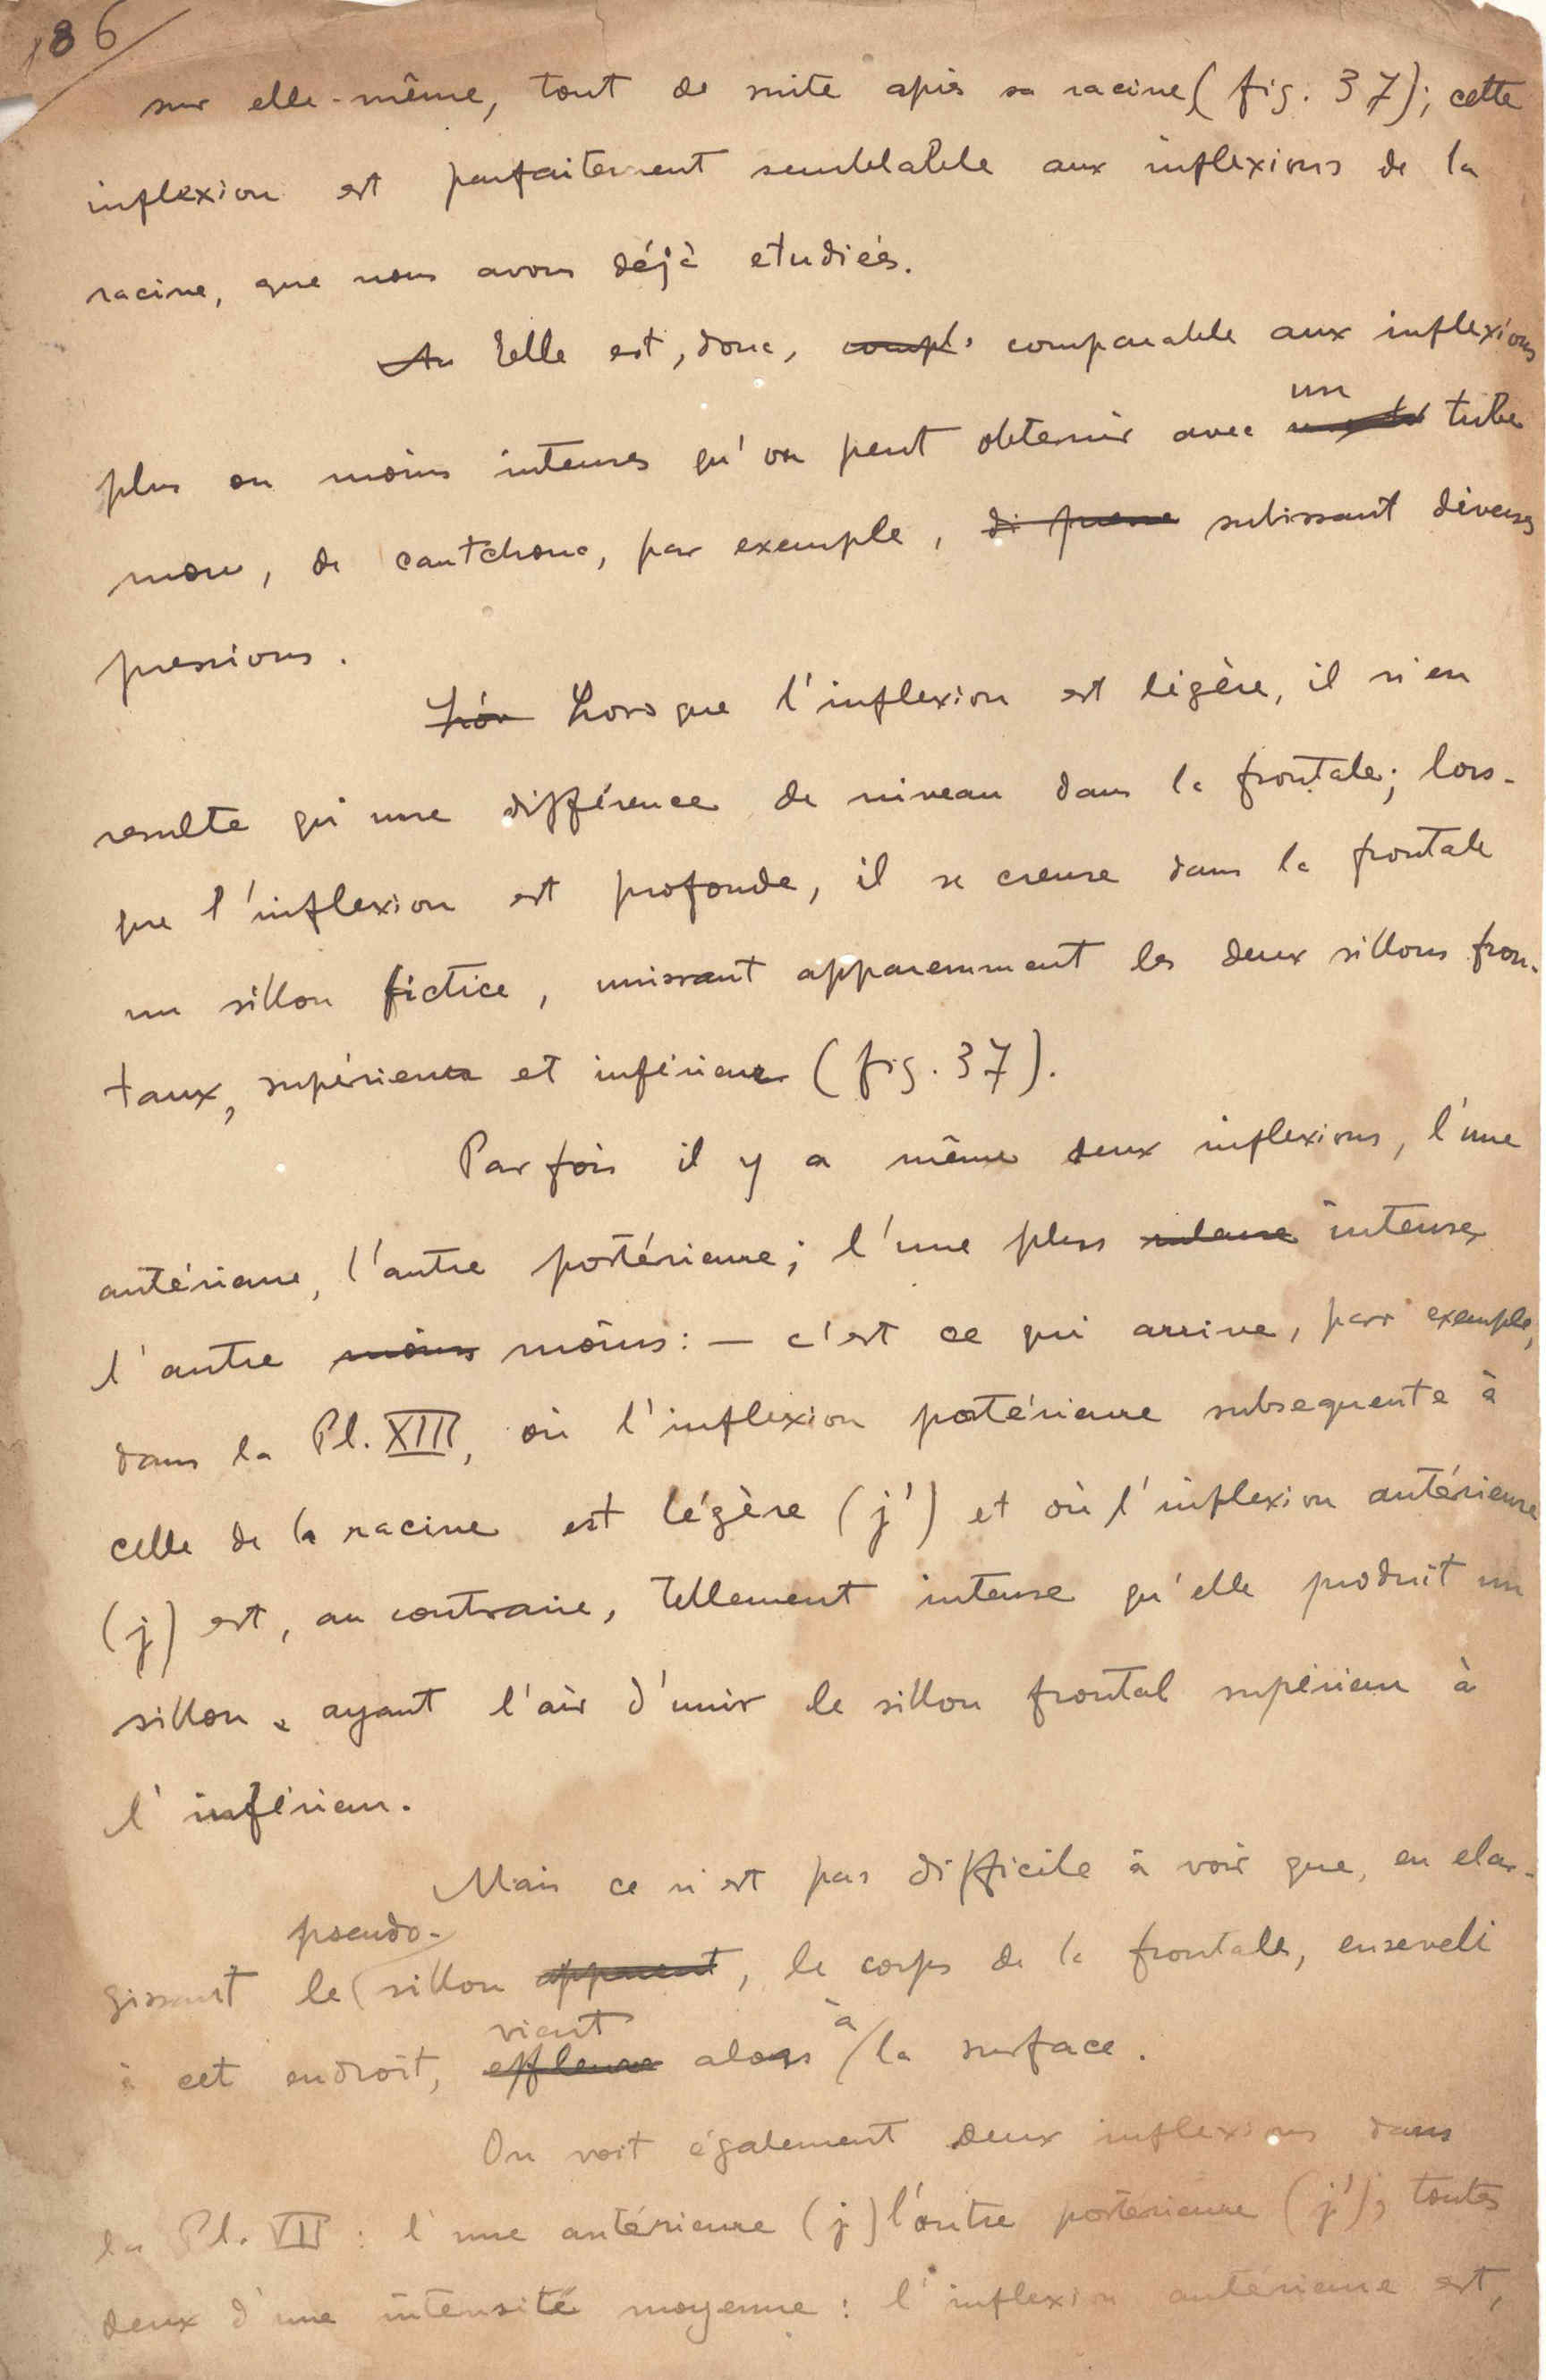 186
sur elle-même, tout de suite après sa racine (fig. 37); cette
inflexion est parfaitement semblable aux inflexions de la
racine, que nous avons déjà etudiées.
Elle est, donc, comparable aux inflexions
un
plus ou moins intenses qu'on peut obtenir avec tube
mou, de caoutchouc, par exemple, subissant diverses
pressions.
Lorsque l'inflexion est légère, il n'en
resulte qu'une différence de niveau dans la frontale; lors-
que l'inflexion est profonde, il se creuse dans la frontale
un sillon fictice, unissant apparemment les deux sillons fron-
taux, supérieur et inférieur (fig. 37).
Parfois il y a même deux inflexions, l'une
antérieure, l'autre postérieure; l'une plus intense,
l'autre moins moins: — c'est ce qui arrive, par exemple,
dans la Pl. XIII, où l'inflexion postérieure subsequente à
celle de la racine est légère (j') et où l'inflexion antérieure
(j) est, au contraire, tellement intense qu'elle produit un
sillon, ayant l'air d'unir le sillon frontal supérieur à
l'inférieur.
Mais ce n'est pas difficile à voir que, en elar-
pseudo-
gissant le sillon apparent, le corps de la frontale, enseveli
vient à
à cet endroit, effleure alors la surface.
On voit également deux inflexions dans
la Pl. VII: l'une antérieure (j) l'autre postérieure (j'), toutes
deux d'une intensité moyenne: l'inflexion antérieure est,